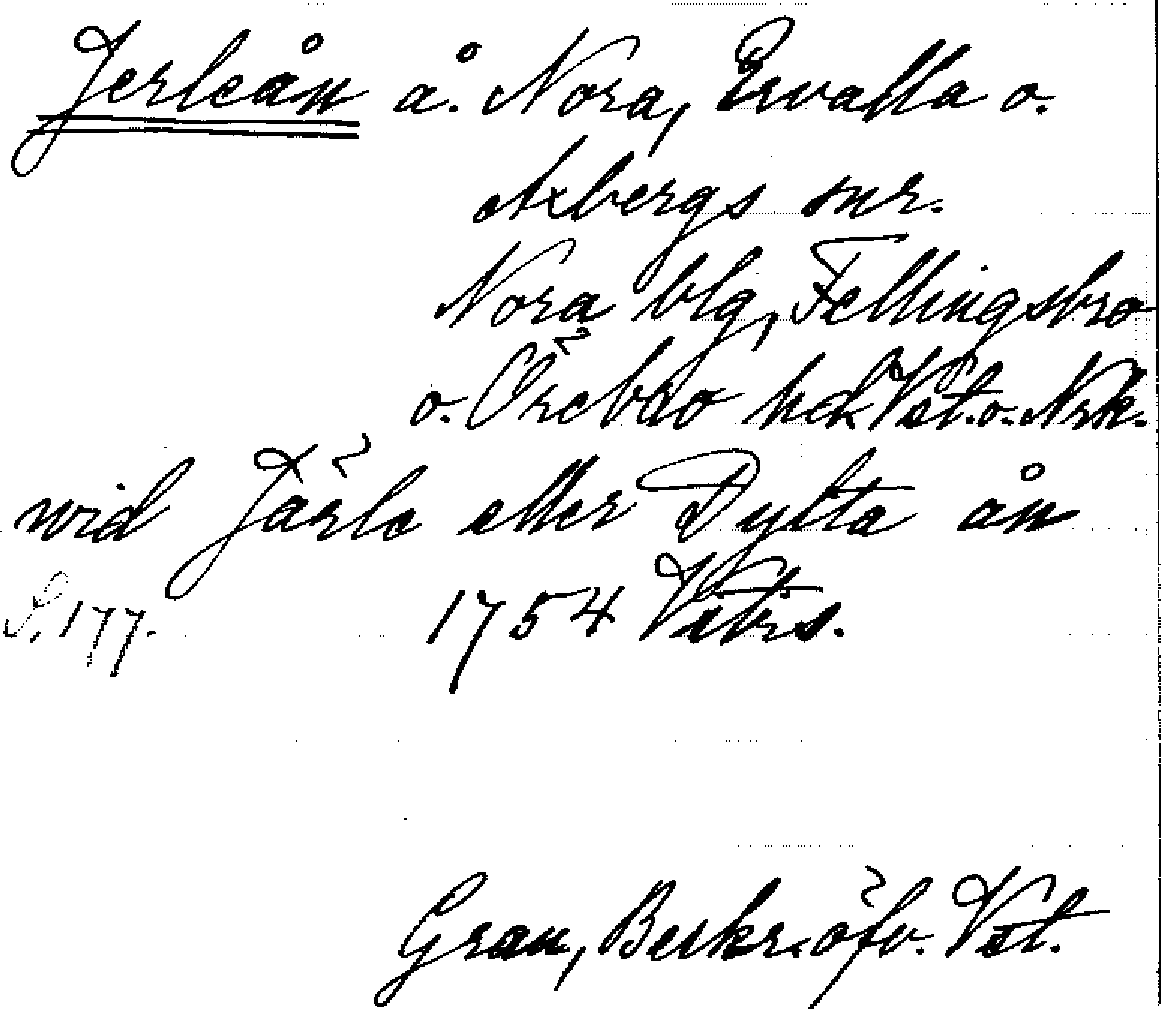 Jerleån å. Nora, Ervalla o.
Axbergs snr.
Nora blg, Fellingsbro
o. Örebro hdr Vst. o. Nrk.
wid Järle eller Dylta ån
S. 177. 1754 Vstrs.
Grau, Beskr. öfv. Vst.